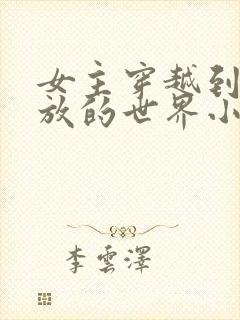 女主穿越到
放的世界小
李雲澤